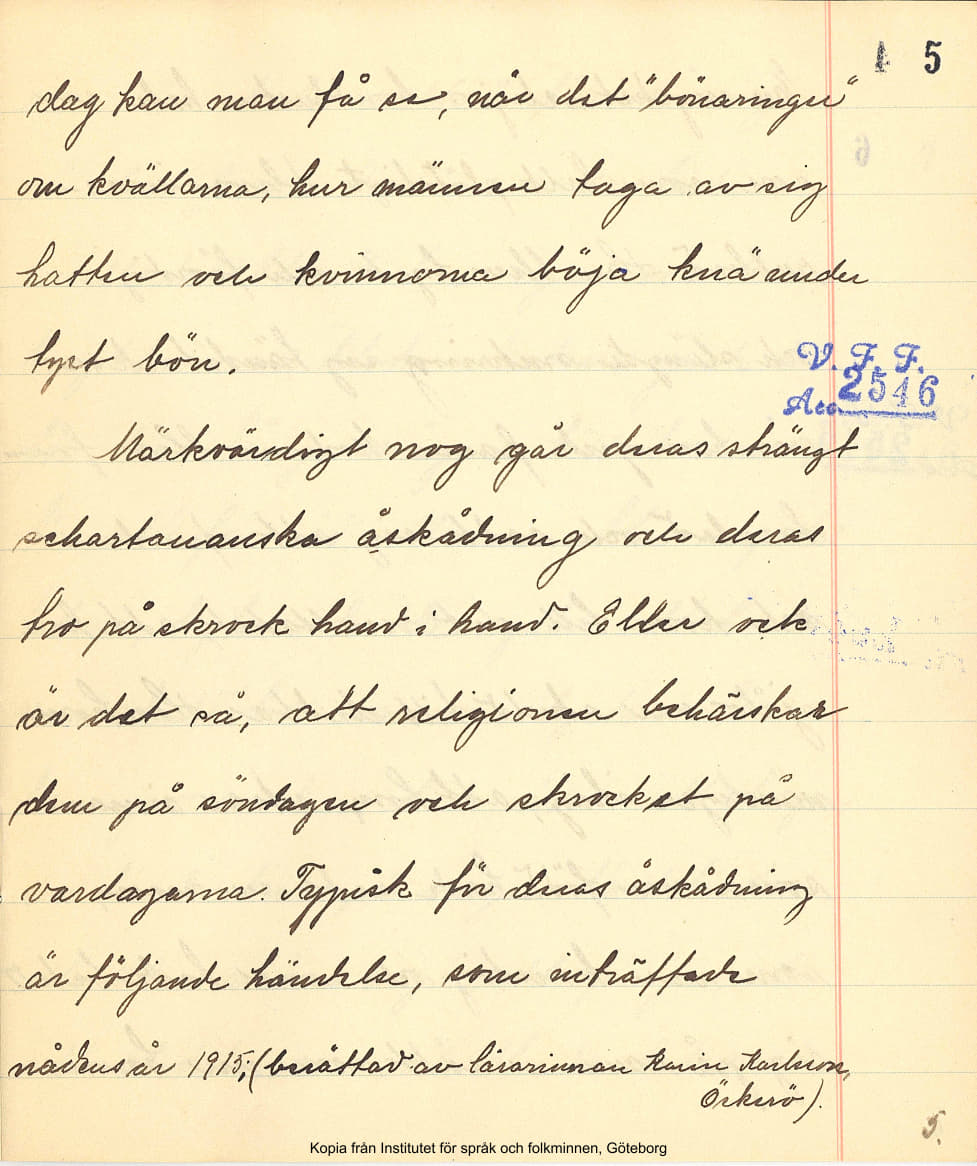 4 5
dag kan man få se, när det "bönaringer"
om kvällarna, hur männen taga av sig
hatten och kvinnorna böja knä under
tyst bön.
V. F. F.
Acc 2546
Märkvärdigt nog går deras strängt
schartauanska åskådning och deras
tro på skrock hand i hand. Eller ock
är det så, att religionen behärskar
dem på söndagen och skrocket på
vardagarna. Typisk för deras åskådning
är följande händelse, som inträffade
nådens år 1915; (berättad av lärarinnan Karin Karlsson,
Öckerö).
5.
Kopia från Institutet för språk och folkminnen, Göteborg